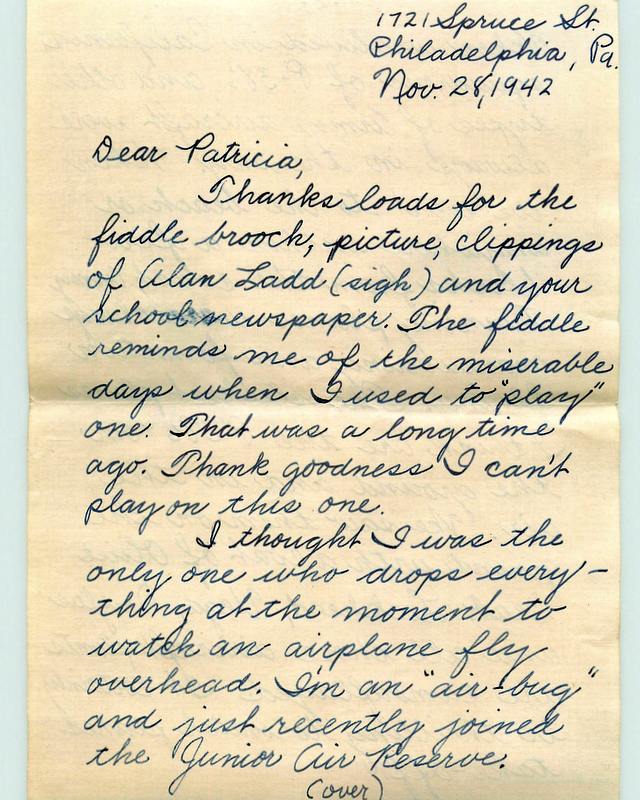 1721 Spruce St.
Philadelphia, Pa.
Nov. 28, 1942
Dear Patricia,
Thanks loads for the
fiddle brooch, picture, clippings
of Alan Ladd (sigh) and your
school newspaper. The fiddle
reminds me of the miserable
days when I used to "play"
one. That was a long time
ago. Thank goodness I can't
play on this one.
I thought I was the
only one who drops every-
thing at the moment to
watch an airplane fly
overhead. I'm an "air-bug"
and just recently joined
the Junior Air Reserve.
(over)